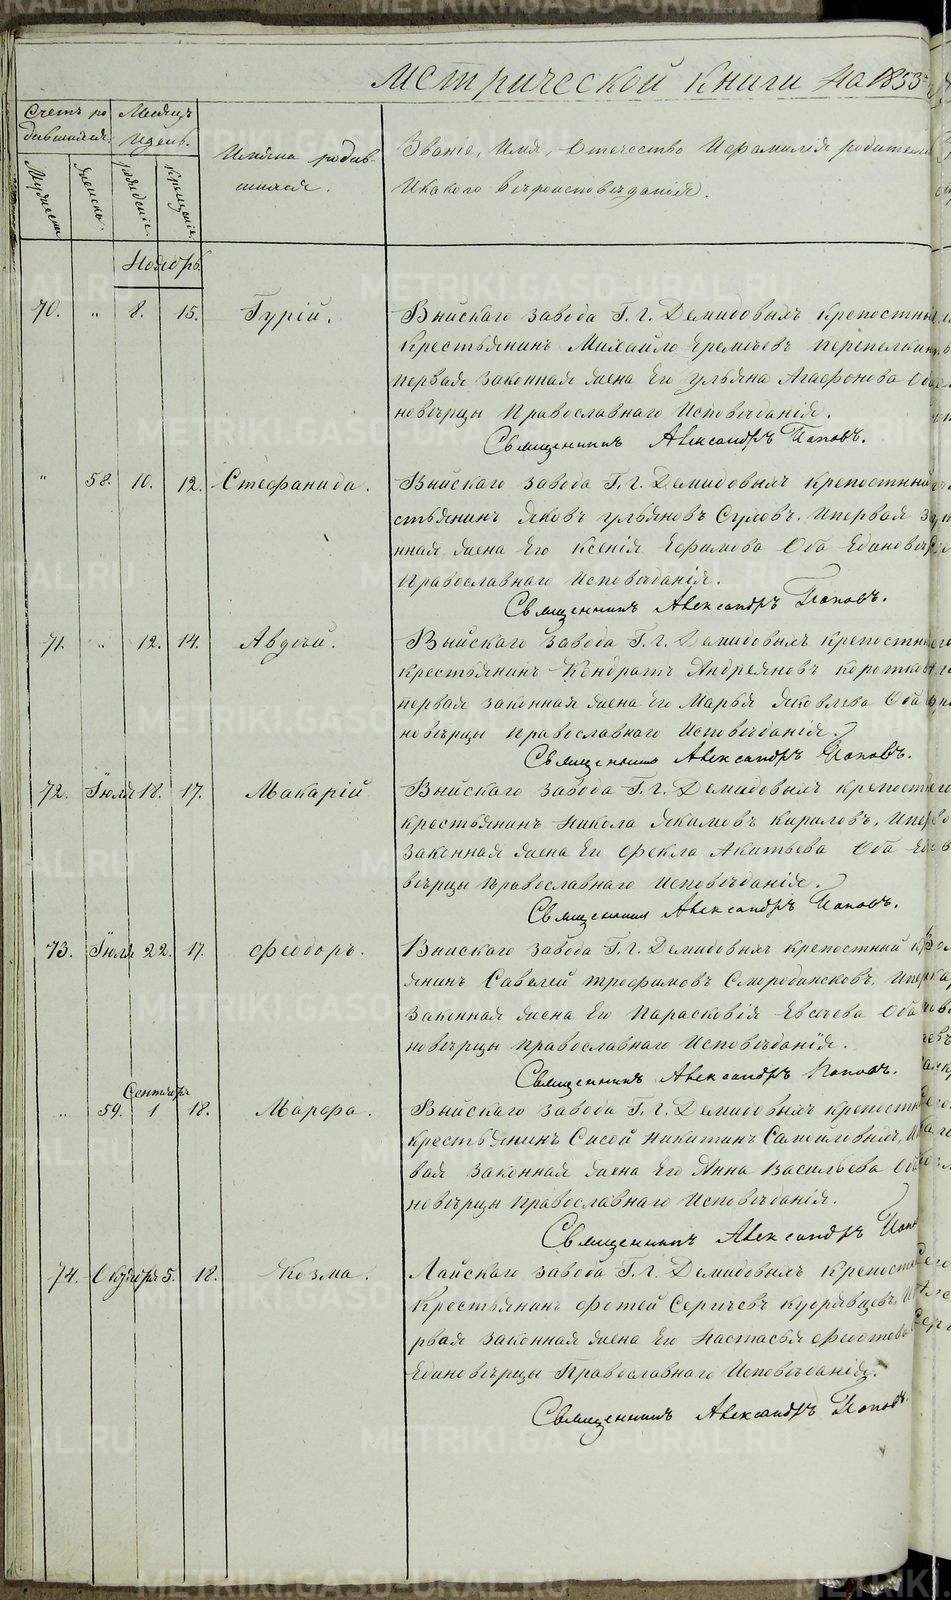 Метрической книги на 1853
Счетъ ро
дившихся.
Месяцъ
и день.
Мужеска
Женска.
рождения.
крещения.
Имяна родив-
шихся.
Званіе, Имя, Отечество и фамилія родителей
и какого вѣроисповѣданія.
Ноябрь.
70. „ 8. 15. Гурій. Выйскаго завода Г. г. Демидовыхъ крепостный
крестьянинъ Михайло Еремѣевъ перепелкинъ
первая законная жена Его Ульяна Агафонова Оба
новѣрцы Православнаго Исповѣданія.
Священникъ Александръ Поповъ.
„ 58. 10. 12. Стефанида. Выйскаго завода Г. г. Демидовыхъ крепостный
стьянинъ Яковъ Ульяновъ Суловъ. и первая за
нная жена Его Ксенія Ефимова Оба Единовѣр
Православнаго Исповѣданія.
Священникъ Александръ Поповъ.
71. „ 12. 14. Авдѣй. Выйскаго завода Г. г. Демидовыхъ крепостны
крестьянинъ Кондратъ Андреяновъ коротков
первая законная жена Его Марья Яковлева Оба
новѣрцы православнаго Исповѣданія.
Священникъ Александръ Поповъ.
72. Іюля 18. 17. Макарій Выйскаго завода Г. г. Демидовыхъ крепост
крестьянинъ Никола Якимовъ Кириловъ, и пер
законная жена Его Фекла Акитьева Оба Еди
вѣрцы православнаго исповѣданія.
Священникъ Александръ Поповъ.
73. Іюля 22. 17. Феодоръ. Выйскаго завода Г. г. Демидовыхъ крепостный кр
янинъ Савелей трофимовъ Смородинсковъ, и пер
законная жена Его Парасковія Евсѣева Оба
новѣрцы православнаго Исповѣданія.
Священникъ Александръ Поповъ.
Сентябрь
„ 59. 1 18. Марфа. Выйскаго завода Г. г. Демидовыхъ крепостн
крестьянинъ Сисой Никитинъ Самойловыхъ, и
вая законная жена Его Анна Васильева Оба
новѣрцы православнаго Исповѣданія.
Священникъ Александръ Попо
74. Октября 5. 18. Козма. Лайскаго завода Г. г. Демидовыхъ крепост
Крестьянинъ Фотей Сергѣевъ Кудрявцевъ, и
рвая законная жена Его Настасья Федотова
Единовѣрцы Православнаго Исповѣданія.
Священникъ Александръ Поповъ
METRIKI.GASO-URAL.RU